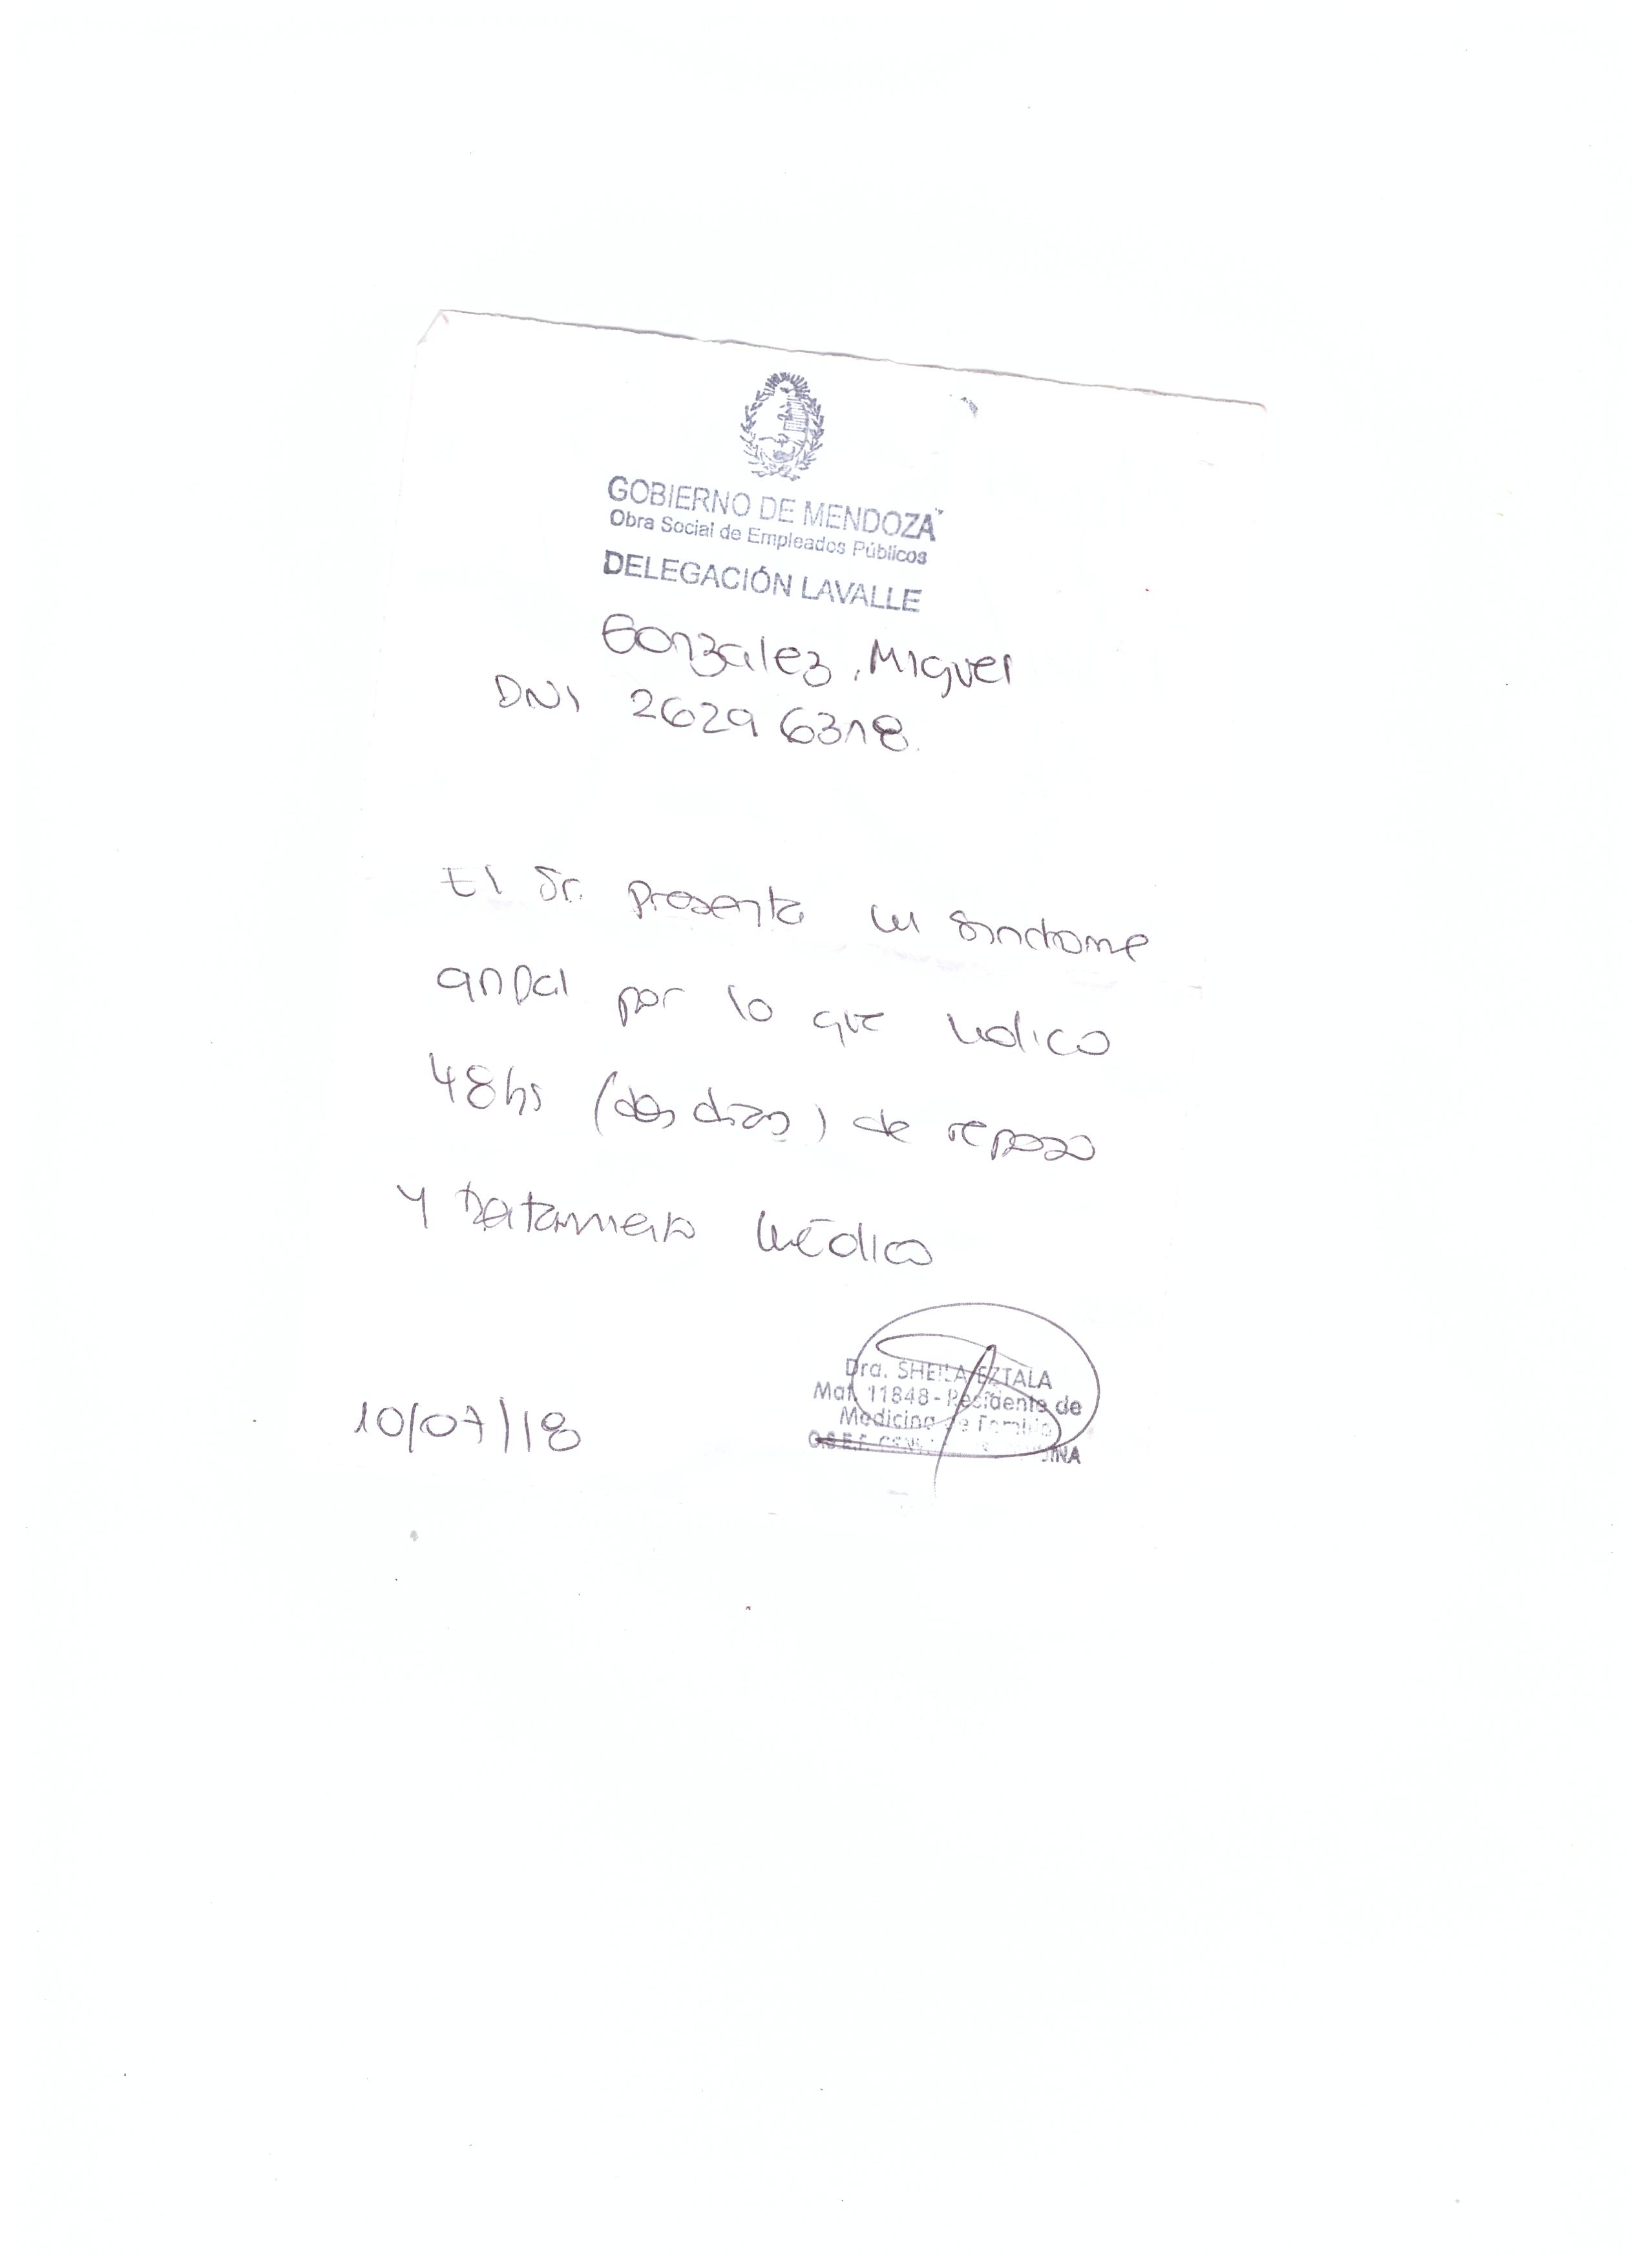 GOBIERNO DE MENDOZA
Obra Social de Empleados Públicos
DELEGACIÓN LAVALLE
Gonzalez, Miguel
DNI 26296318.
El Sr. presenta un síndrome
gripal por lo que indico
48hs (dos días) de reposo
y tratamiento médico
10/07/18
Dra. SHEILA EZTALA
Mat. 11848 - Residente de
Medicina de Familia